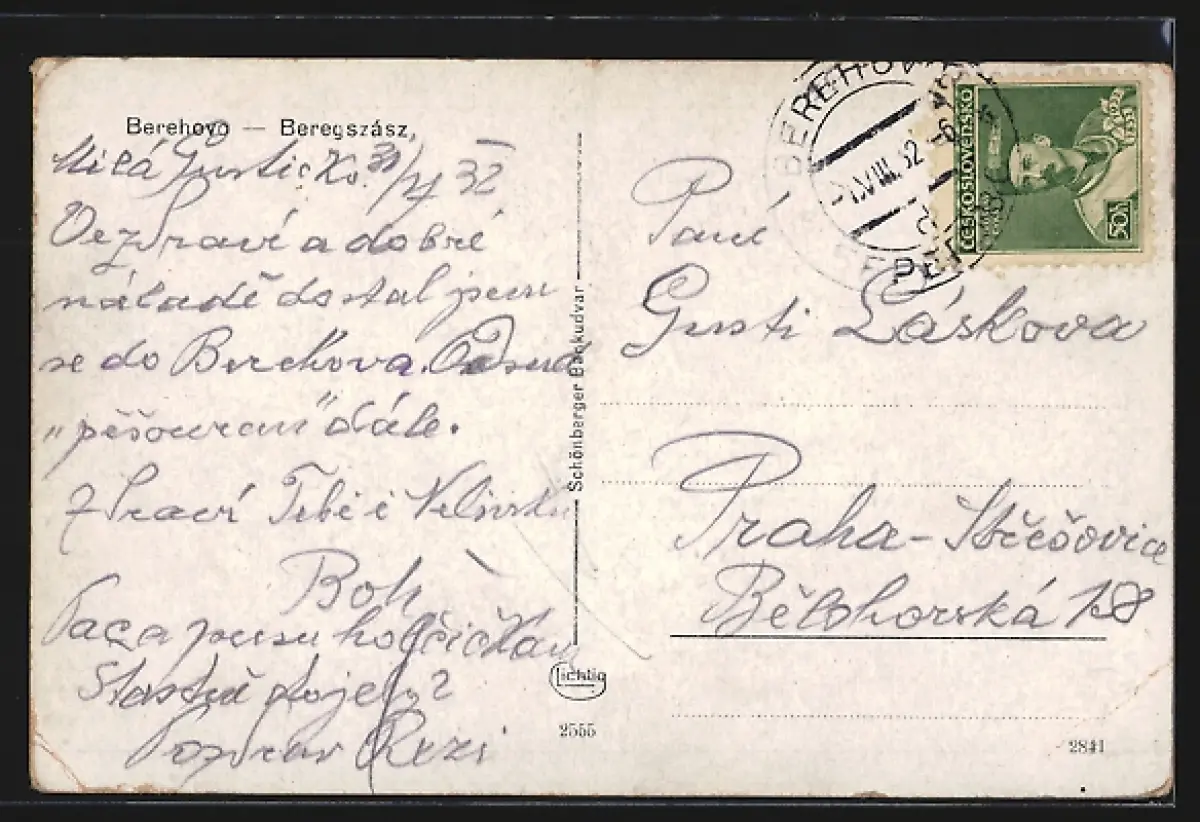 Berehovo — Beregszász,
Milá Gustičko. 31/VII 32
Ve zdraví a dobré
náladě dostal jsem
se do Berehova. Odsud
"pěšouram" dále.
Zdraví Tebe i
Boh
Pac a pusu holčičkám
Stastně dojely?
Pozdrav Rezi
Schönberger Bankudvar
Lichtig
2555
BEREHOVO
VIII.32
ČESKOSLOVENSKO
1932
50h
Paní
Gusti Láskova
Praha-Střešovice
Bělohorská 128
2841